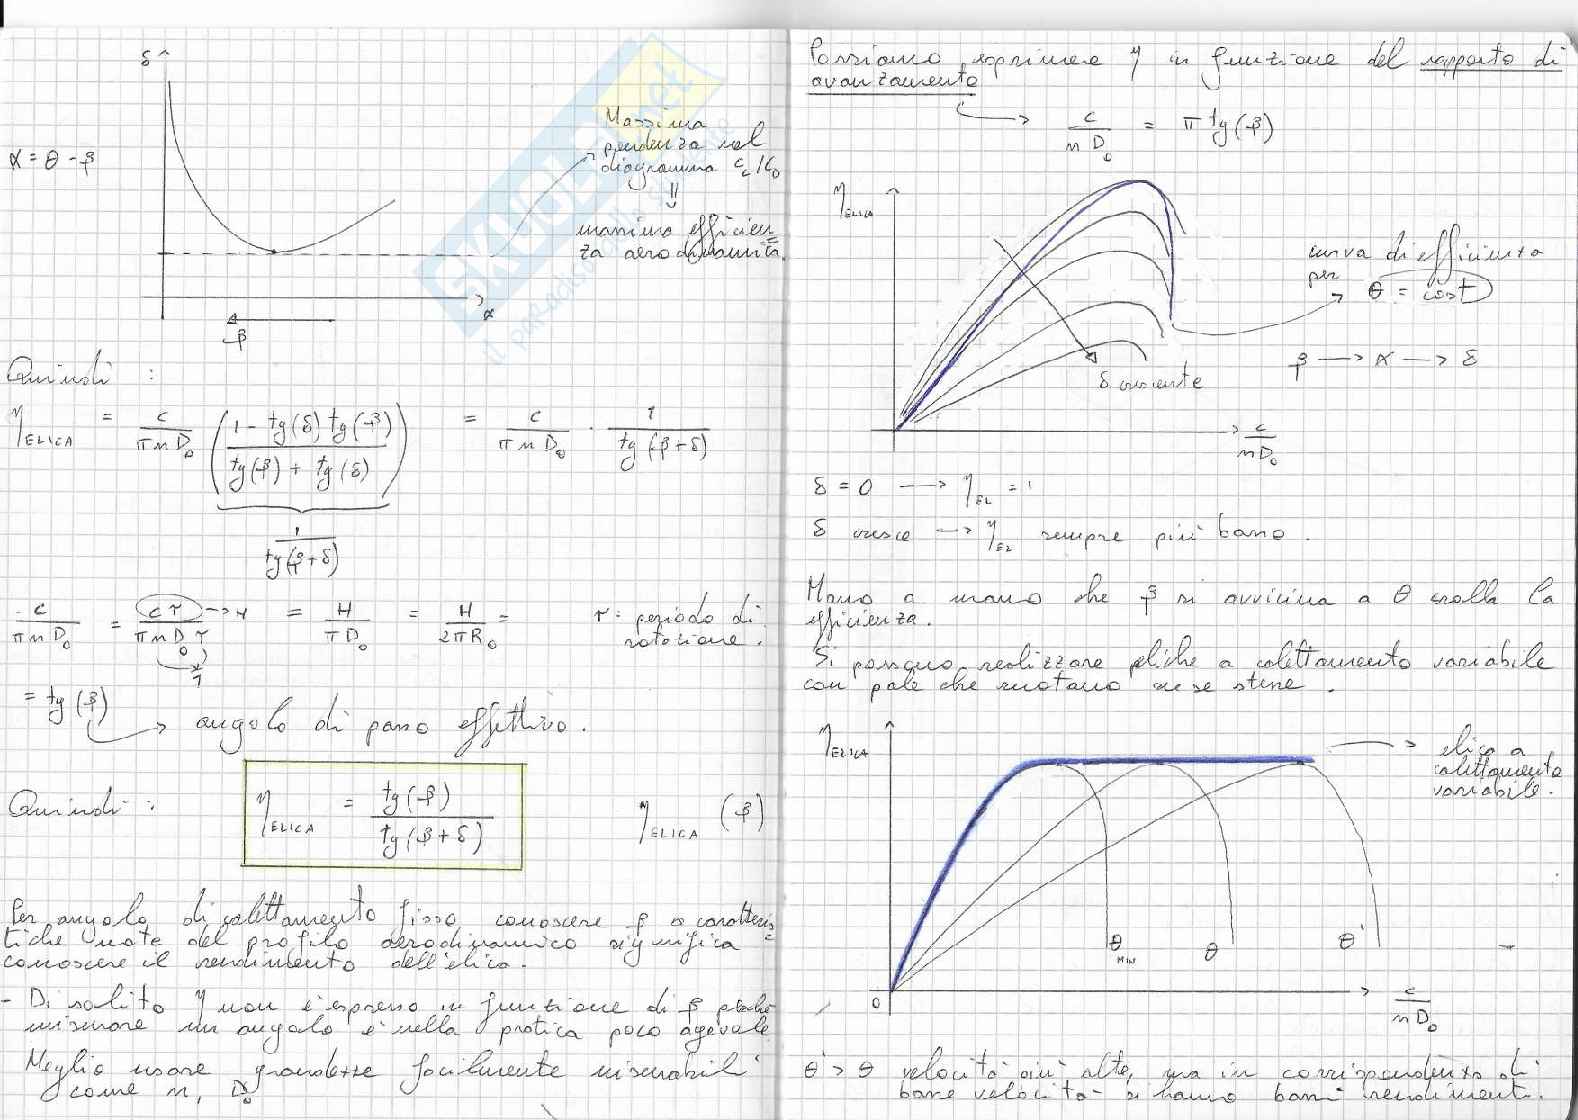 δ
α = θ - β
Massima
pendenza nel
diagramma C_L/C_D
⇓
massima efficien=
za aerodinamica.
α
β
Quindi :
η_ELICA = c/(π n D_0) ( (1 - tg(δ) tg(β)) / (tg(β) + tg(δ)) ) = c/(π n D_0) · 1/tg(β+δ)
1/tg(β+δ)
c/(π n D_0) = cτ/(π n D_0 τ) → H = H/(π D_0) = H/(2πR_0) =
1
τ : periodo di
rotazione.
= tg(β) → angolo di passo effettivo.
Quindi : η_ELICA = tg(β)/tg(β+δ) η_ELICA (β)
Per angolo di calettamento fisso conoscere β a caratteris=
tiche note del profilo aerodinamico significa
conoscere il rendimento dell'elica.
- Di solito η non è espresso in funzione di β perché
misurare un angolo è nella pratica poco agevole
Meglio usare grandezze facilmente misurabili
come n, D_0
Possiamo esprimere η in funzione del rapporto di
avanzamento
→ c/(n D_0) = π tg(β)
η_ELICA
curva di efficienza
per
θ = cost
β → α → δ
δ crescente
c/(n D_0)
δ = 0 → η_EL = 1
δ cresce → η_EL sempre più basso.
Mano a mano che β si avvicina a θ crolla la
efficienza.
Si possono realizzare eliche a calettamento variabile
con pale che ruotano su se stesse.
η_ELICA
elica a
calettamento
variabile.
θ_MIN θ θ'
0
c/(n D_0)
θ' > θ velocità più alte, ma in corrispondenza di
basse velocità si hanno bassi rendimenti.
SKUOLA.net
il paradiso dello studente